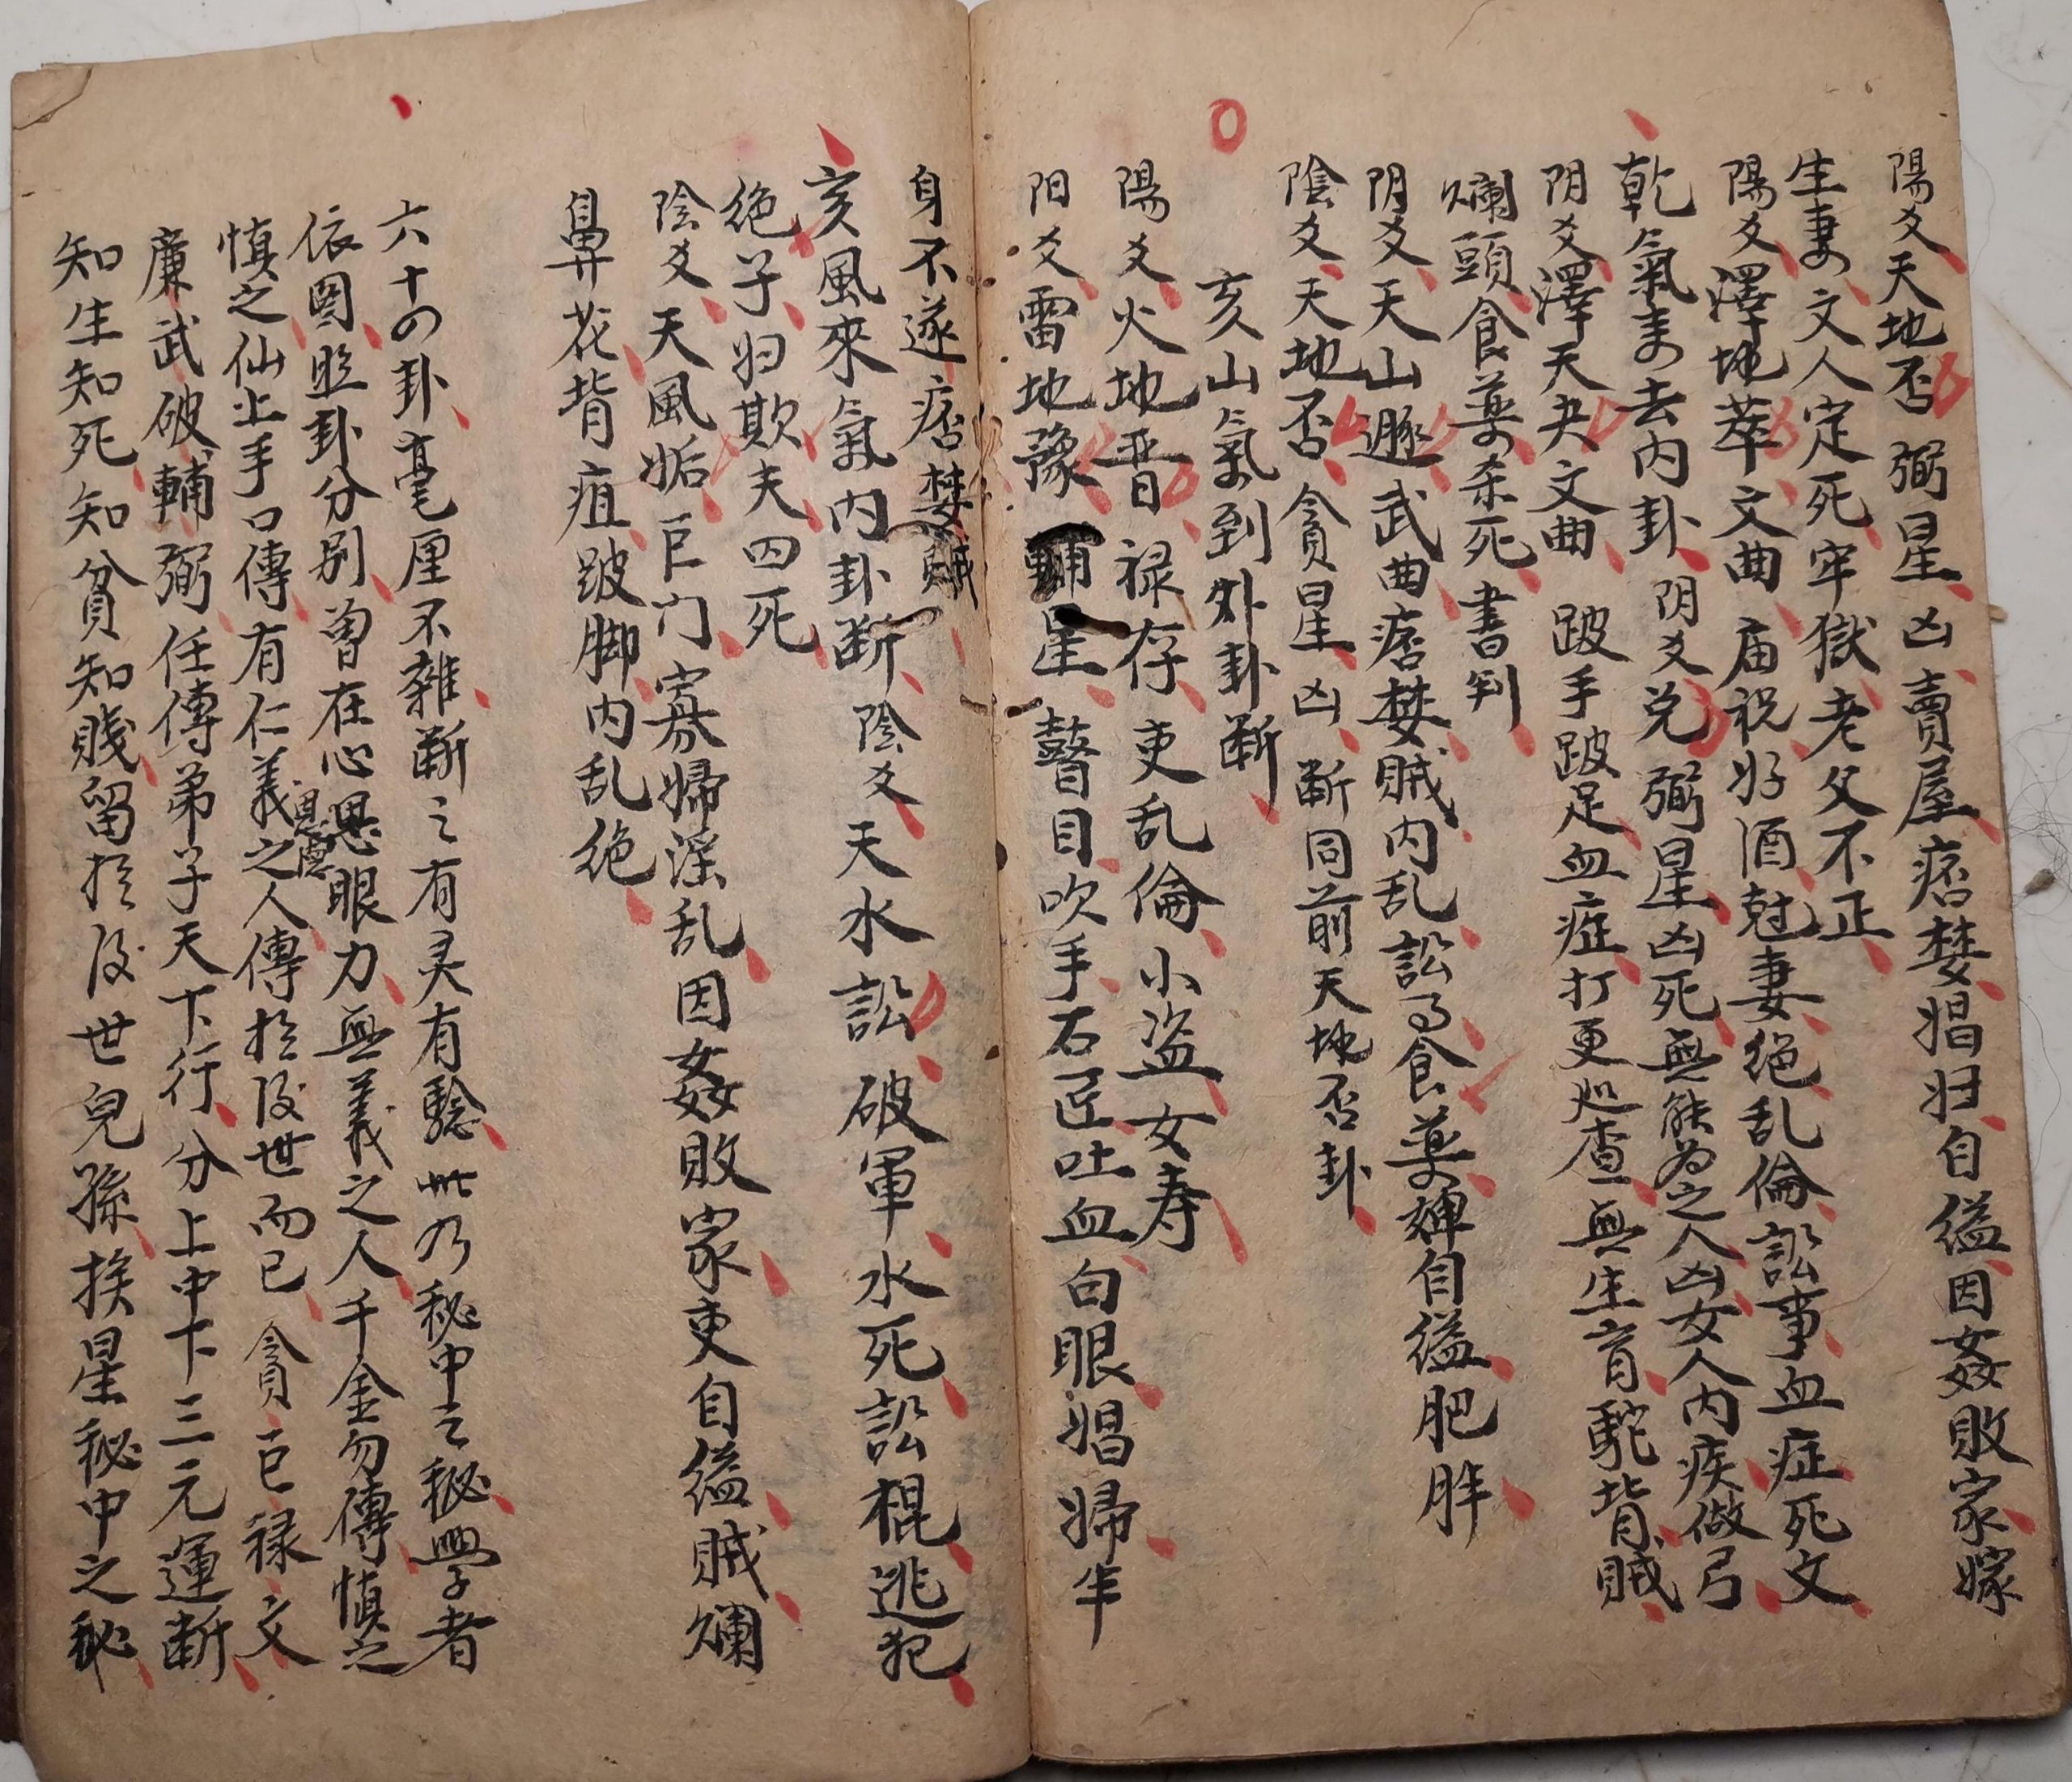 陽爻天地否 弼星凶 賣屋 痞婪娼妇自縊因姦敗家嫁
生妻文人定死牢獄老父不正
陽爻澤地萃 文曲 庙祝好酒尅妻絕乱倫訟事血症死文
乾氣去内卦 阴爻兑 弼星凶死無能为之人凶女人内疾做弓
阴爻澤天夬文曲 跛手跛足血症打更巡查無生育駝背賊
爛頭食薬杀死書判
阴爻天山遯武曲痞婪賊内乱訟食薬自縊肥胖
陰爻天地否 貪星凶 断同前天地否卦
亥山氣到外卦断
陽爻火地晋 禄存 吏乱倫小盗女寿
阳爻雷地豫 輔星 瞽目吹手石匠吐血白眼娼婦半
身不遂痞婪賊
亥風來氣内卦断 陰爻天水訟 破軍水死訟棍逃犯
绝子妇欺夫四死
陰爻天風姤巨门寡婦淫乱因姦敗家吏自縊賊爛
鼻花背疽跛脚内乱绝
六十四卦毫厘不雜断之有灵有驗此乃秘中之秘學者
依图照卦分别曽在心思眼力無義之人千金勿傳慎之
慎之仙上手口傳有仁義恩德之人傳於後世而已 貪巨禄文
廉武破輔弼任傳弟子天下行分上中下三元運断
知生知死知貧知賤留於後世兒孫挨星秘中之秘